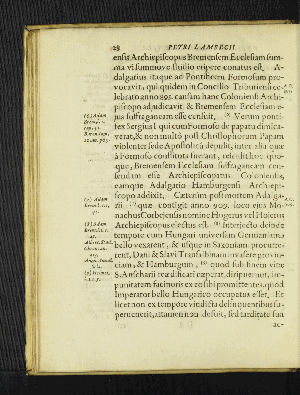 28 PETRI LAMBECII
ensis Archiepiscopus Bremensem Ecclesiam sum-
ma vi summovo studio eripere conatus est. A-
dalgarius itaque ad Pontificem Formosum pro-
vocavit, qui quidem in Concilio Triburiensi ce-
lebrato anno 895. causam hanc Coloniensi Archi-
piscopo adjudicavit & Bremensem Ecclesiam e-
jus suffraganeam esse censuit. Verum ponti-
fex Sergius I. qui cum Formoso de papatu dimica-
verat, & non multò post Christophorum Papam
violenter sede Apostolicâ depulit, inter alia quæ
à Formoso constituta fuerant, rescidit hoc quo-
que, Bremensem Ecclesiam Suffraganeam cen-
sendam esse Archiepiscopatus Coloniensis,
eamque Adalgario Hamburgensi Archiepi-
scopo addixit. Cæterum post mortem Adalga-
rii quæ contigit anno 909. loco ejus Mo-
nachus Corbejensis nomine Hogerus vel Hojerus
Archiepiscopus electus est. Interjecto deinde
tempore cum Hungari universam Germaniam
bello vexarent, & usque in Saxoniam procurre-
rent, Dani & Slavi Transalbinam invasere provin-
ciam, & Hamburgum, quod sub finem vitæ
S. Anscharii reædificari cœperat, diripuerunt, im-
punitatem facinoris ex eo sibi promittentes, quod
Imperator bello Hungarico occupatus esset. Et
licet non ex tempore vindicta delinquentibus su-
pervenerit, attamen non desuit, sed tarditate sua
ac-
(6) Adam
Bremens.
(7) Adam
Brem. l. 1.
(8) Adam
Brem. l. 1.